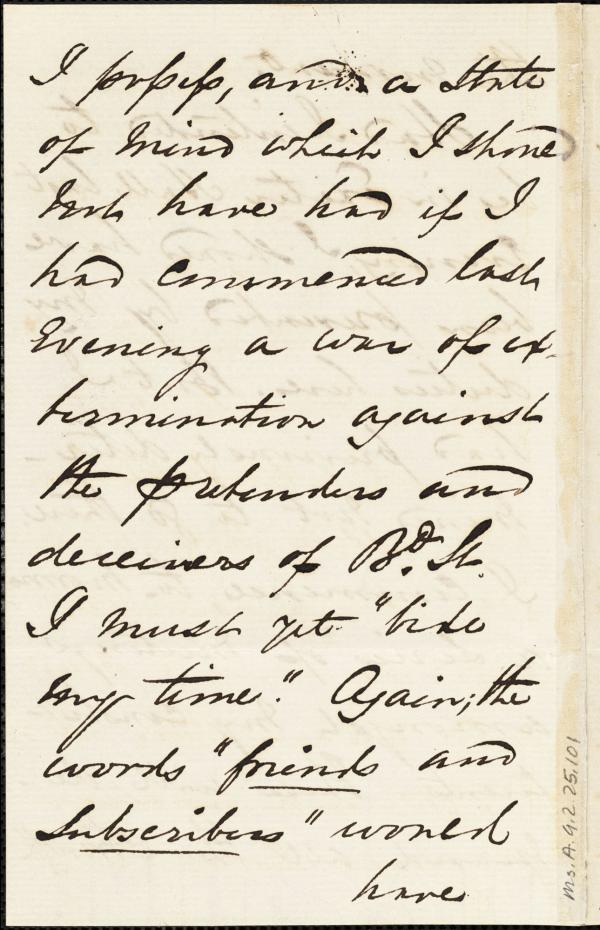 I possess, and a State
of mind which I should
not have had if I
had commenced last
Evening a war of ex-
termination against
the pretenders and
deceivers of Bd. St.
I must yet "bide
my time." Again; the
words "friends and
Subscribers" would
have
Ms. A. 9. 2. 25. 101